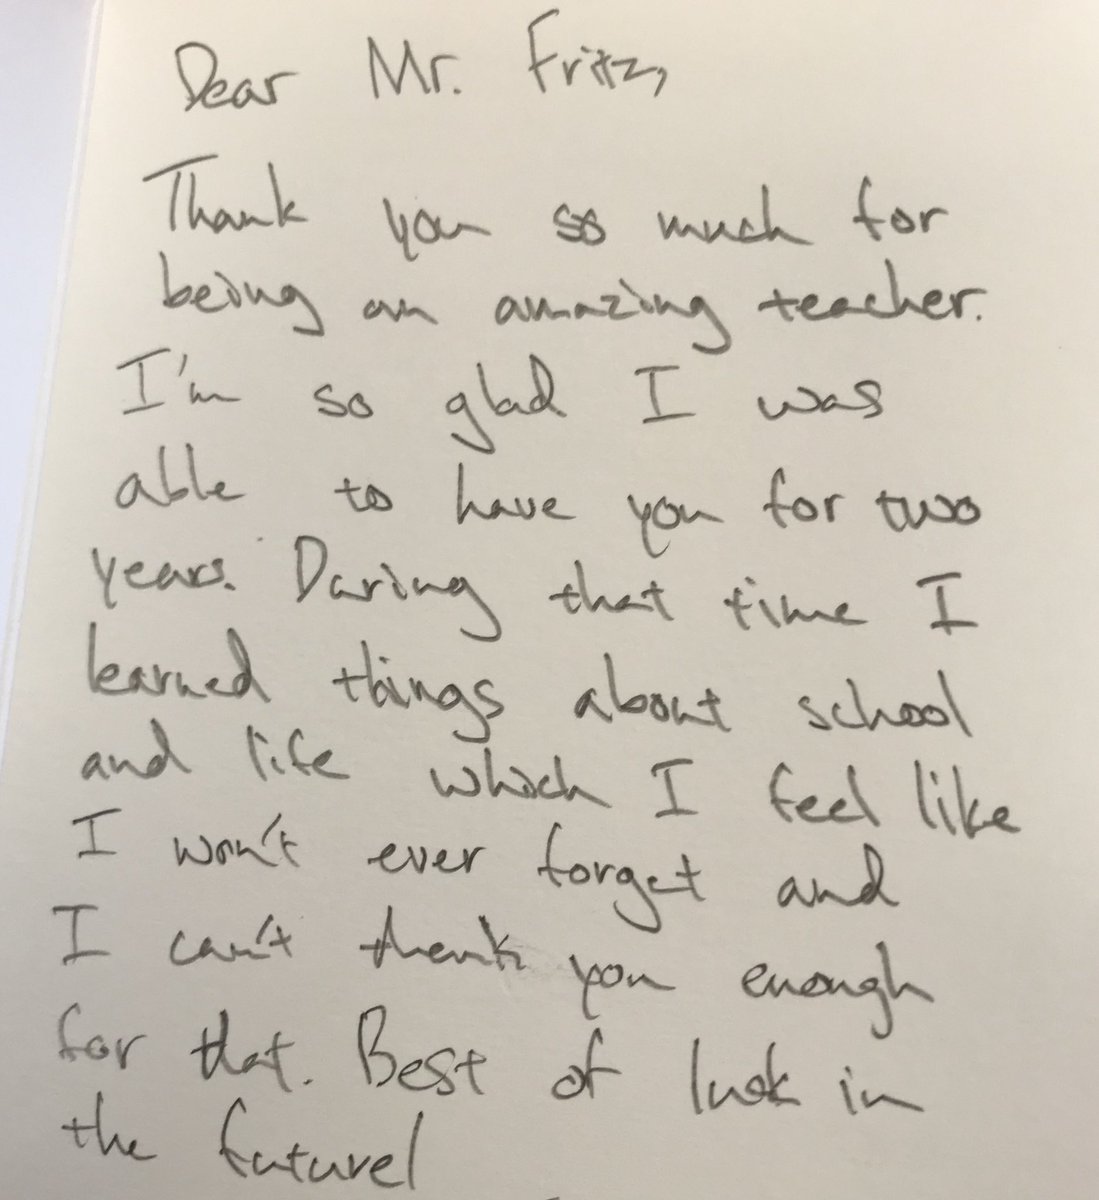 Dear Mr. Fritz,
Thank you so much for
being an amazing teacher.
I'm so glad I was
able to have you for two
years. During that time I
learned things about school
and life which I feel like
I won't ever forget and
I can't thank you enough
for that. Best of luck in
the future!